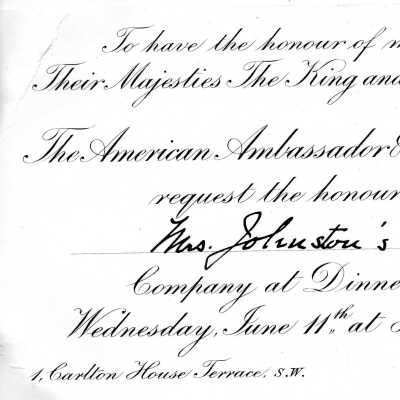 To have the honour of m
Their Majesties The King and
The American Ambassador &
request the honour
Mrs. Johnston's
Company at Dinne
Wednesday, June 11th at
1, Carlton House Terrace, S.W.